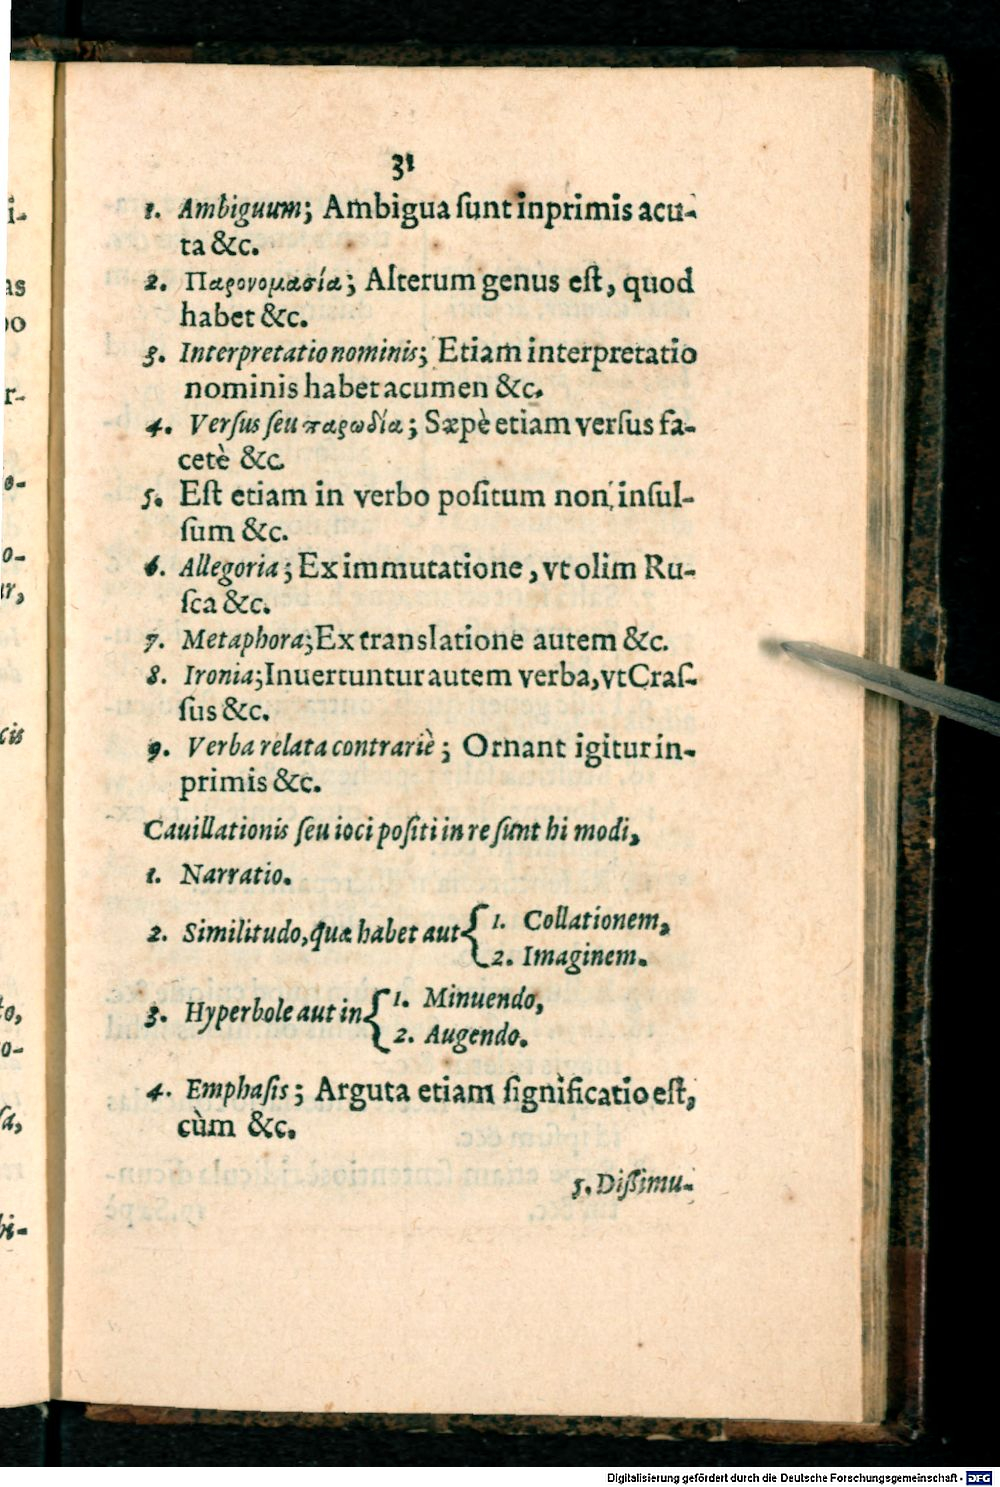 31
1. Ambiguum; Ambigua ſunt inprimis acu-
ta &c.
2. Παρονομασία; Alterum genus eſt, quod
habet &c.
3. Interpretatio nominis; Etiam interpretatio
nominis habet acumen &c.
4. Verſus ſeu παρωδία; Sæpè etiam verſus fa-
cetè &c
5. Eſt etiam in verbo poſitum non inſul-
ſum &c.
6. Allegoria; Ex immutatione, vt olim Ru-
ſca &c.
7. Metaphora; Ex translatione autem &c.
8. Ironia; Inuertuntur autem verba, vt Craſ-
ſus &c.
9. Verba relata contrariè; Ornant igitur in-
primis &c.
Cauillationis ſeu ioci poſiti in re ſunt hi modi,
1. Narratio.
2. Similitudo, quæ habet aut { 1. Collationem,
2. Imaginem.
3. Hyperbole aut in { 1. Minuendo,
2. Augendo.
4. Emphaſis; Arguta etiam ſignificatio eſt,
cùm &c.
5. Diſſimu-
Digitalisierung gefördert durch die Deutsche Forschungsgemeinschaft - DFG